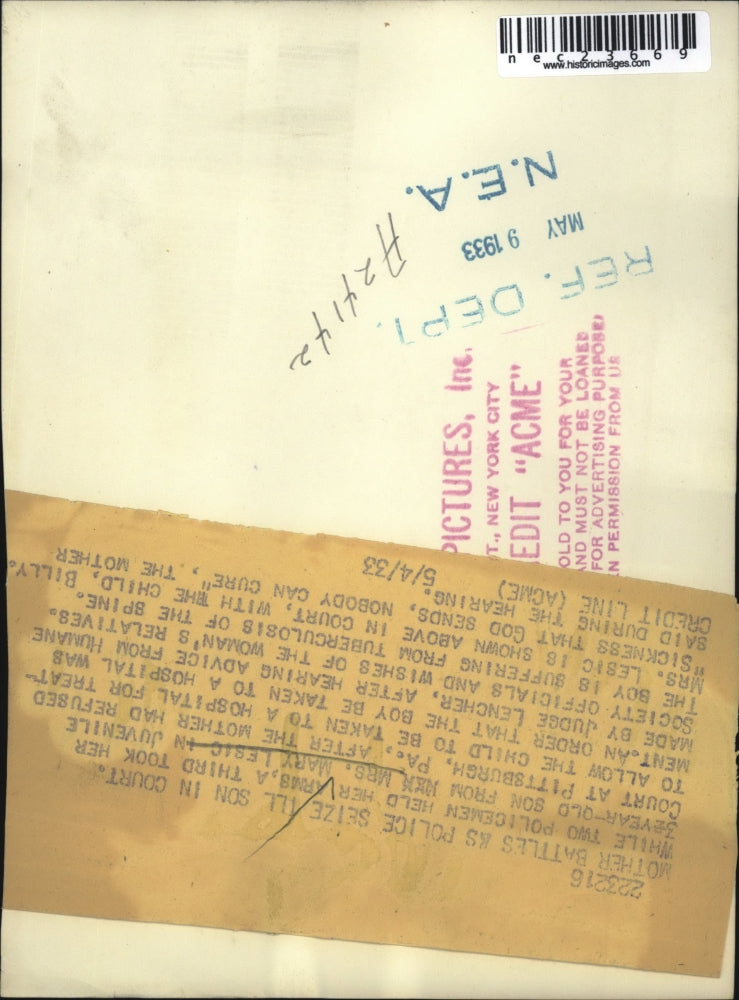 nec23669
www.historicimages.com
N.E.A.
MAY 9 1933
REF. DEPT.
A24142
PICTURES, Inc.
T., NEW YORK CITY
EDIT "ACME"
OLD TO YOU FOR YOUR
AND MUST NOT BE LOANED
FOR ADVERTISING PURPOSES
N PERMISSION FROM US
223216
MOTHER BATTLES AS POLICE SEIZE ILL SON IN COURT.
WHILE TWO POLICEMEN HELD HER ARMS, A THIRD TOOK HER
YEAR-OLD SON FROM HER MRS. MARY LESIC IN JUVENILE
COURT AT PITTSBURGH, PA., AFTER THE MOTHER HAD REFUSED
TO ALLOW THE CHILD TO BE TAKEN TO A HOSPITAL FOR TREAT-
MENT. AN ORDER THAT THE BOY BE TAKEN TO A HOSPITAL WAS
MADE BY JUDGE LENCHER, AFTER HEARING ADVICE FROM HUMANE
SOCIETY OFFICIALS AND WISHES OF THE WOMAN'S RELATIVES.
THE BOY IS SUFFERING FROM TUBERCULOSIS OF THE SPINE.
MRS. LESIC IS SHOWN ABOVE IN COURT, WITH THE CHILD, BILLY.
"SICKNESS THAT GOD SENDS, NOBODY CAN CURE", THE MOTHER
SAID DURING THE HEARING.
CREDIT LINE (ACME) 5/4/33